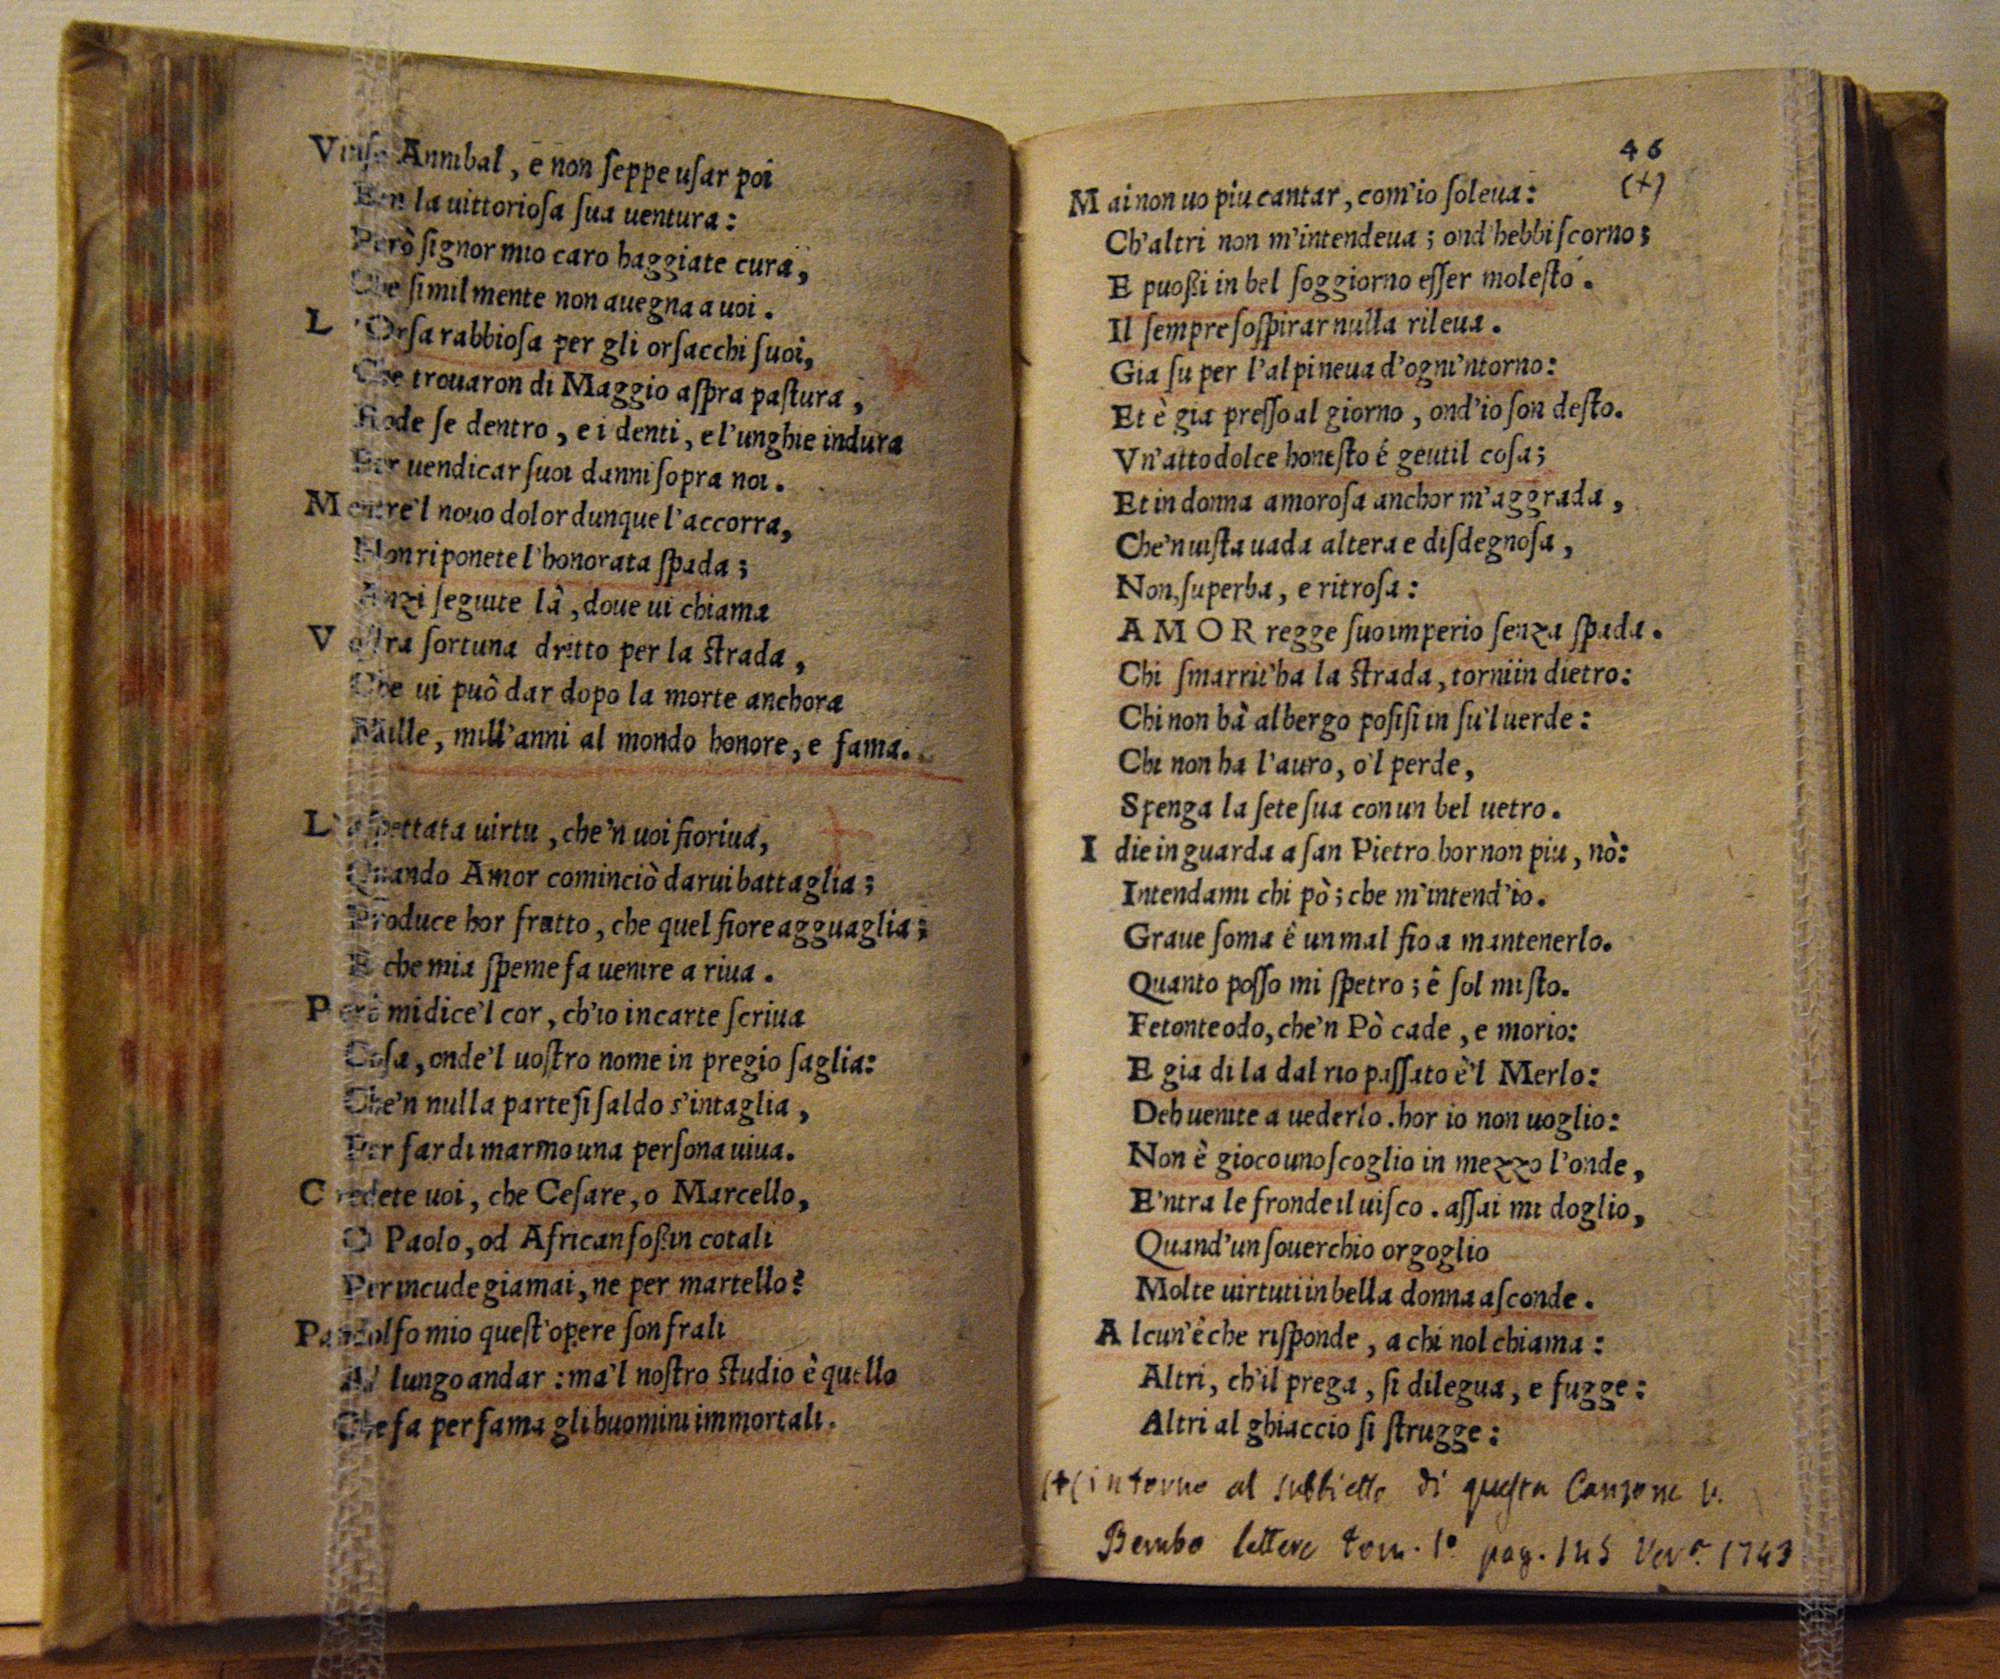 Vinse Annibal, e non seppe usar poi
Ben la uittoriosa sua uentura:
Però signor mio caro haggiate cura,
Che similmente non auegna a uoi.
L'Orsa rabbiosa per gli orsacchi suoi,
Che trouaron di Maggio aspra pastura,
Rode se dentro, e i denti, e l'unghie indura
Per uendicar suoi danni sopra noi.
Mentre'l nouo dolor dunque l'accorra,
Non riponete l'honorata spada;
Anzi seguite là, doue ui chiama
Vostra fortuna dritto per la strada,
Che ui può dar dopo la morte anchora
Mille, mill'anni al mondo honore, e fama.
L'aspettata uirtu, che'n uoi fioriua,
Quando Amor cominciò darui battaglia;
Produce hor frutto, che quel fiore agguaglia;
E che mia speme fa uenire a riua.
Però mi dice'l cor, ch'io in carte scriua
Cosa, onde'l uostro nome in pregio saglia:
Che'n nulla parte si saldo s'intaglia,
Per far di marmo una persona uiua.
Credete uoi, che Cesare, o Marcello,
O Paolo, od African foßin cotali
Per incude giamai, ne per martello?
Pandolfo mio quest'opere son frali
Al lungo andar: ma'l nostro studio è quello
Che fa per fama gli huomini immortali.
46
(+)
Mai non uo piu cantar, com'io soleua:
Ch'altri non m'intendeua; ond'hebbi scorno;
E puoßi in bel soggiorno esser molesto.
Il sempre sospirar nulla rileua.
Gia su per l'alpi neua d'ogni'ntorno:
Et è gia presso al giorno, ond'io son desto.
Vn'atto dolce honesto é gentil cosa;
Et in donna amorosa anchor m'aggrada,
Che'n uista uada altera e disdegnosa,
Non superba, e ritrosa:
AMOR regge suo imperio senza spada.
Chi smarrit'ha la strada, torni in dietro:
Chi non hà albergo posisi in su'l uerde:
Chi non ha l'auro, o'l perde,
Spenga la sete sua con un bel uetro.
I die in guarda a san Pietro hor non piu, nò:
Intendami chi pò; che m'intend'io.
Graue soma è un mal fio a mantenerlo.
Quanto posso mi spetro; è sol mi sto.
Fetonte odo, che'n Pò cade, e morio:
E gia di la dal rio passato è'l Merlo:
Deh uenite a uederlo. hor io non uoglio:
Non è gioco uno scoglio in mezzo l'onde,
E'ntra le fronde il uisco. assai mi doglio,
Quand'un souerchio orgoglio
Molte uirtuti in bella donna asconde.
Alcun'è che risponde, a chi nol chiama:
Altri, ch'il prega, si dilegua, e fugge:
Altri al ghiaccio si strugge:
(+( intorno al subbietto di questa Canzone v.
Bembo lettere tom. 1° pag. 145 Ver.a 1743